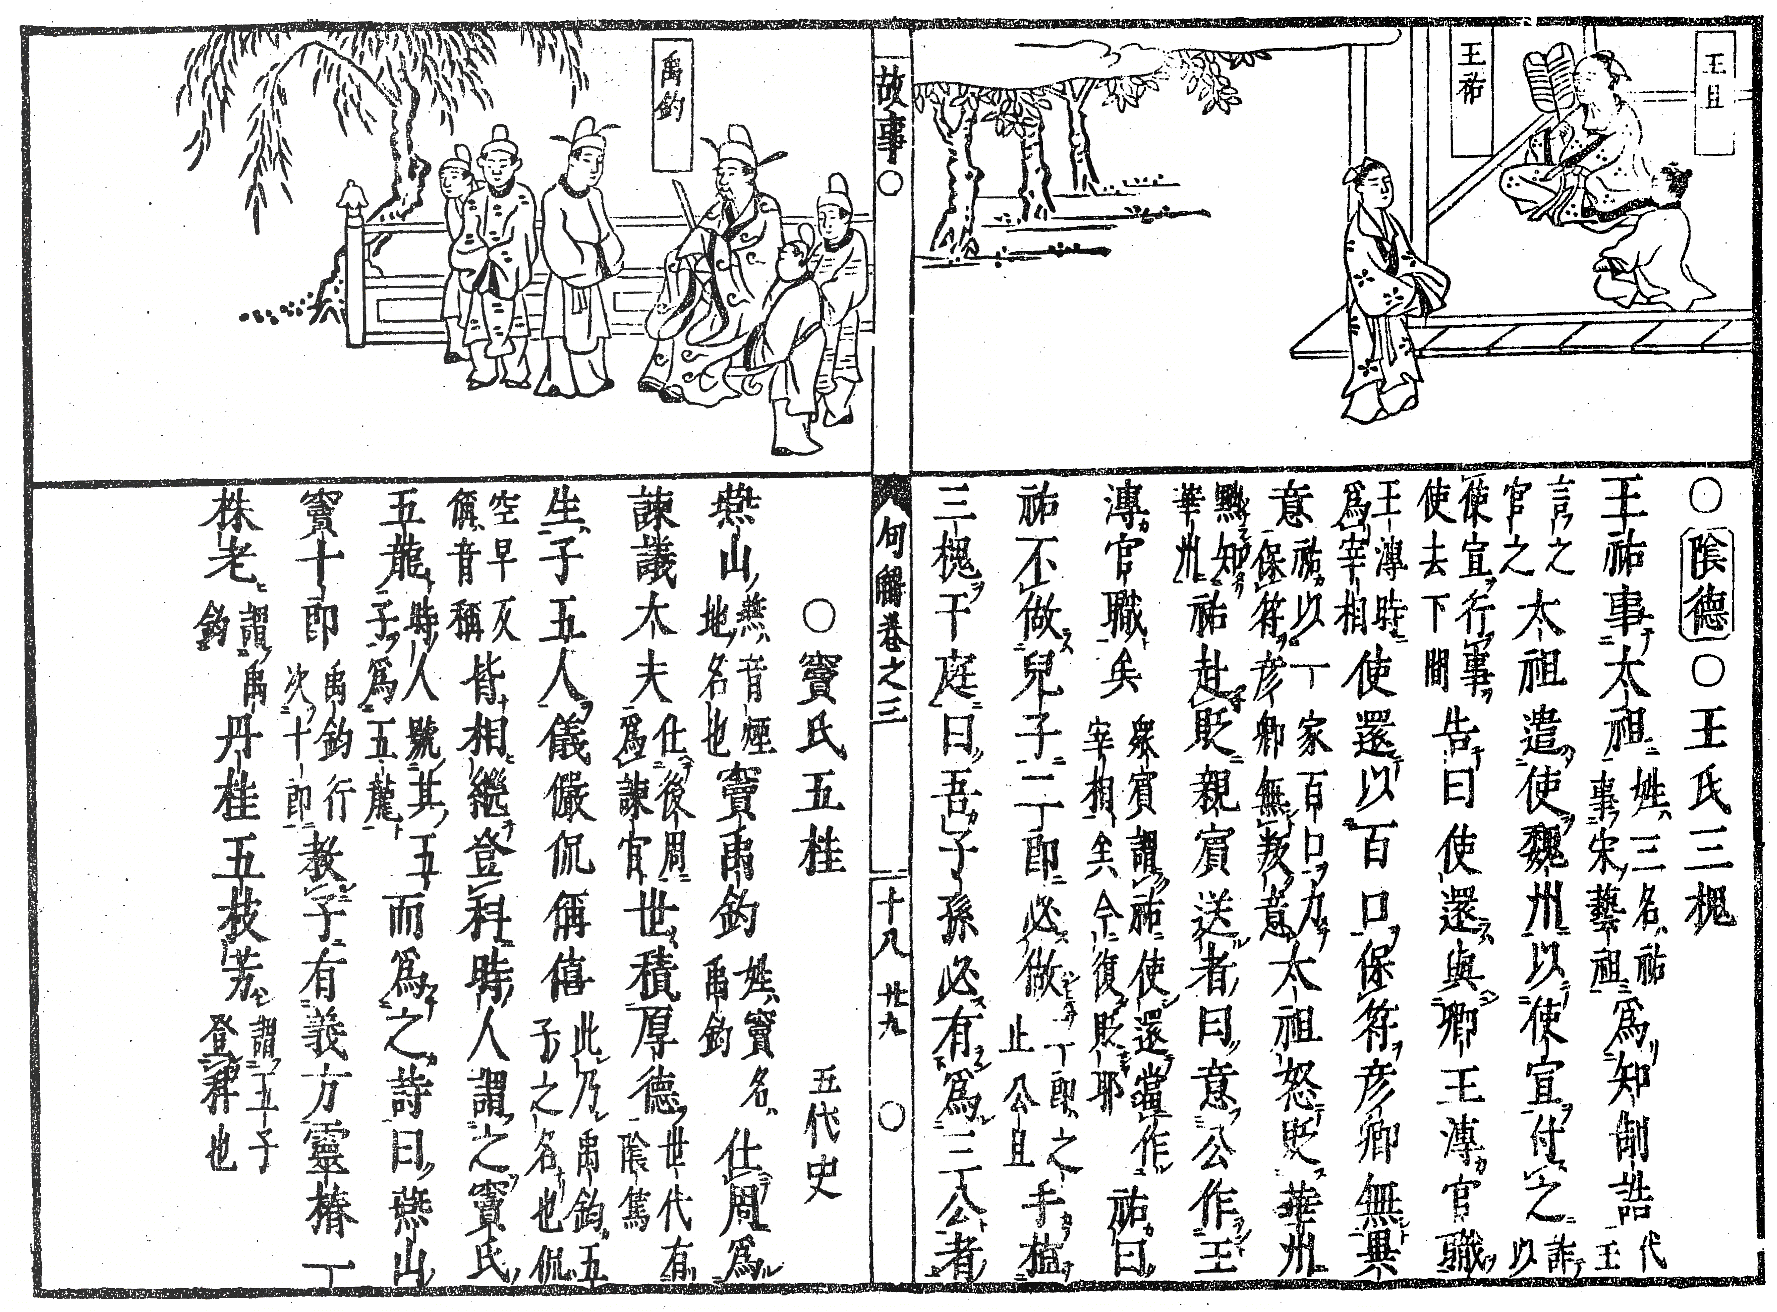 王旦
王祐
○陰德○王氏三槐
王祐事太祖姓三名祐事宋藝祖為知制誥代王
言之官之太祖遣使魏州以使宜付之詐以
使宜行事使去下間告曰使還與卿王溥官職
王溥時為宰相使還以百口保符彥卿無異
意祐以丁家百口力保符彥卿無叛意太祖怒貶華州
黜知華州祐赴貶親賓送者曰意公作王
溥官職矣衆賓謂祐使還當作宰相矣今復貶耶祐曰
祐不做兒子二郎必做丁郎之止公旦手植
三槐于庭曰吾子孫必有為三公者
故事○
句解卷之三 十八 廿九 ○
禹鈞
○竇氏五桂 五代史
燕山燕音煙地名也竇禹鈞姓竇名禹鈞仕周為
諫議太夫仕後周為諫官世積厚德世代有陰篤
生子五人儀儼侃偁僖此乃禹鈞五子之名也侃
空早反偁音稱皆相繼登科時人謂之竇氏
五龍時人號其五子為五龍而為之詩曰燕山
竇十郎禹鈞行次十郎教子有義方靈椿丁
株老謂禹鈞丹桂五枝芳謂五子登科也